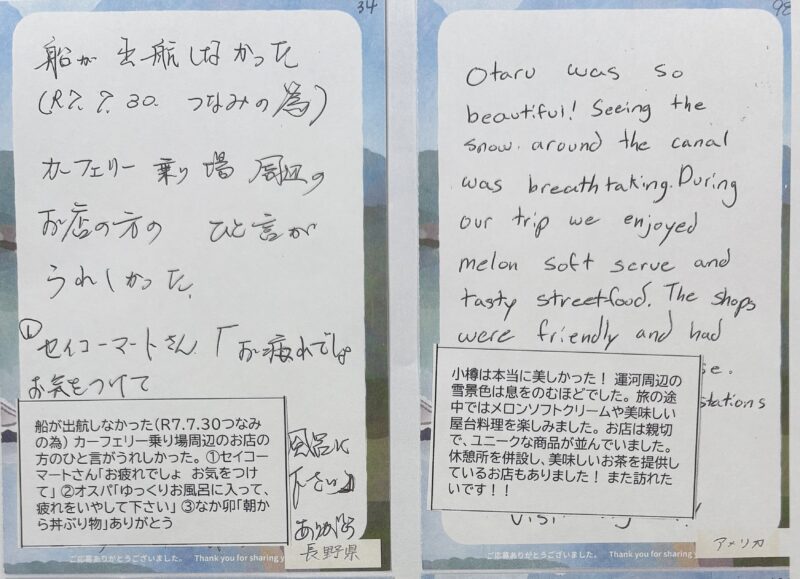 34
船が出航しなかった
(R7.7.30. つなみの為)
カーフェリー乗り場 周辺の
お店の方の ひと言が
うれしかった。
① セイコーマートさん.「お疲れでしょ
お気をつけて
船が出航しなかった(R7.7.30つなみ
の為) カーフェリー乗り場周辺のお店
の方のひと言がうれしかった。①セイコ
ーマートさん「お疲れでしょ お気をつけ
て」②オスパ「ゆっくりお風呂に入って、
疲れをいやして下さい」③なか卯「朝か
ら丼ぶり物」ありがとう
風呂に
下さい」
ありがとう
長野県
ご応募ありがとうございました。 Thank you for sharing y
Otaru was so
beautiful! Seeing the
snow around the canal
was breathtaking. During
our trip we enjoyed
melon soft serve and
tasty streetfood. The shops
were friendly and had
se.
stations
小樽は本当に美しかった! 運河周辺の
雪景色は息をのむほどでした。旅の途
中ではメロンソフトクリームや美味しい
屋台料理を楽しみました。お店は親切
で、ユニークな商品が並んでいました。
休憩所を併設し、美味しいお茶を提供し
ているお店もありました! また訪れた
いです!!
アメリカ
ご応募ありがとうございました。 Thank you for sharing